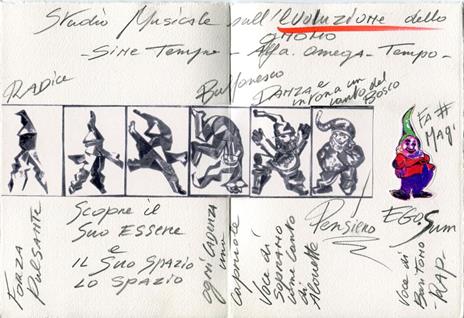 Studio Musicale sull'evoluzione dello
GNOMO
- Sine Tempre - Alfa. omega - Tempo -
RADice
Buffonesco
DANZA e
intona un
canto del
Bosco
FA #
Magi
FORZA
PULSANTE
Scopre il
Suo ESSERE
e
IL Suo SPAZIO
LO SPAZIO
ogni cadenza
una
capriola
Voce di
SOPRANO
come canto
di
Alouette
Pensiero
EGO Sum
Voce di
Baritono
- RAP.